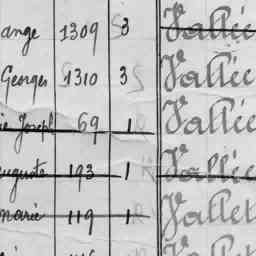 ange 1309 3 Vallée
Georges 1310 3 Vallée
ie Joseph 69 1 Vallée
auguste 193 1 Vallée
marie 119 1 Vallet
Vallet